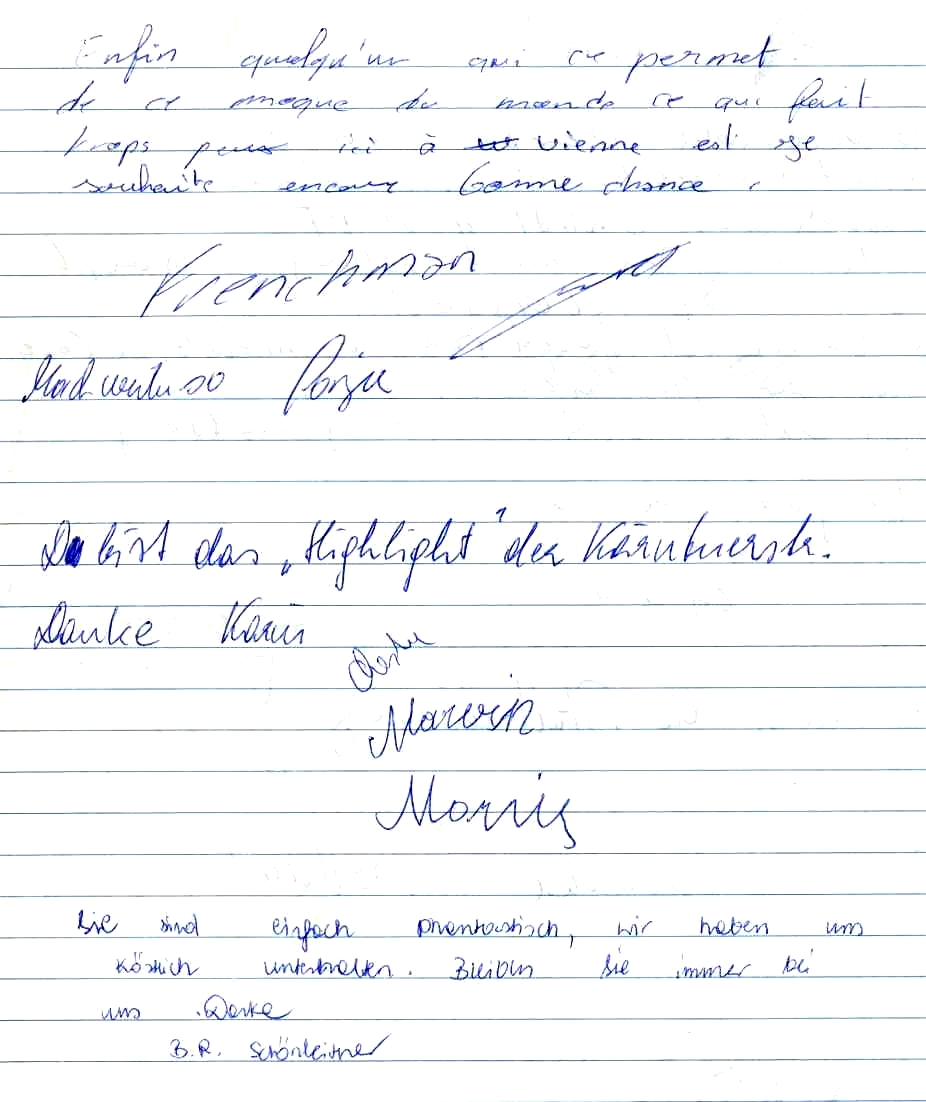 Enfin quelqu'un qui ce permet
de ce moque du monde ce qui fait
trops peux ici à Vienne est je
souhaite encore bonne chance.
Frenchman
Mach weiter so
Du bist das „Highlight" der Kärntnerstr.
Danke Karin
Marvin
Morris
Sie sind einfach phantastisch, wir haben uns
köstlich unterhalten. Bleiben Sie immer bei
uns. Danke
B.R. Schönleitner